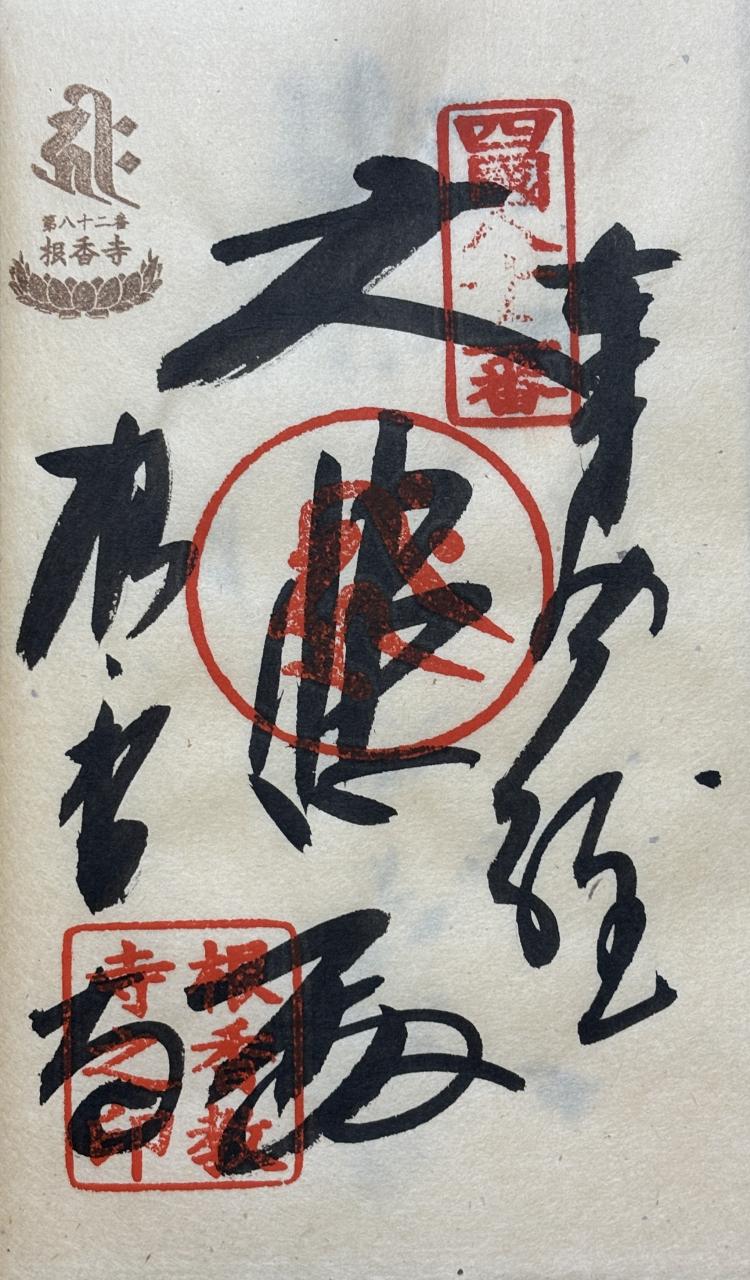 四國八十二番
奉納経
大悲殿
根香寺
第八十二番
根香寺
根香教
寺之印